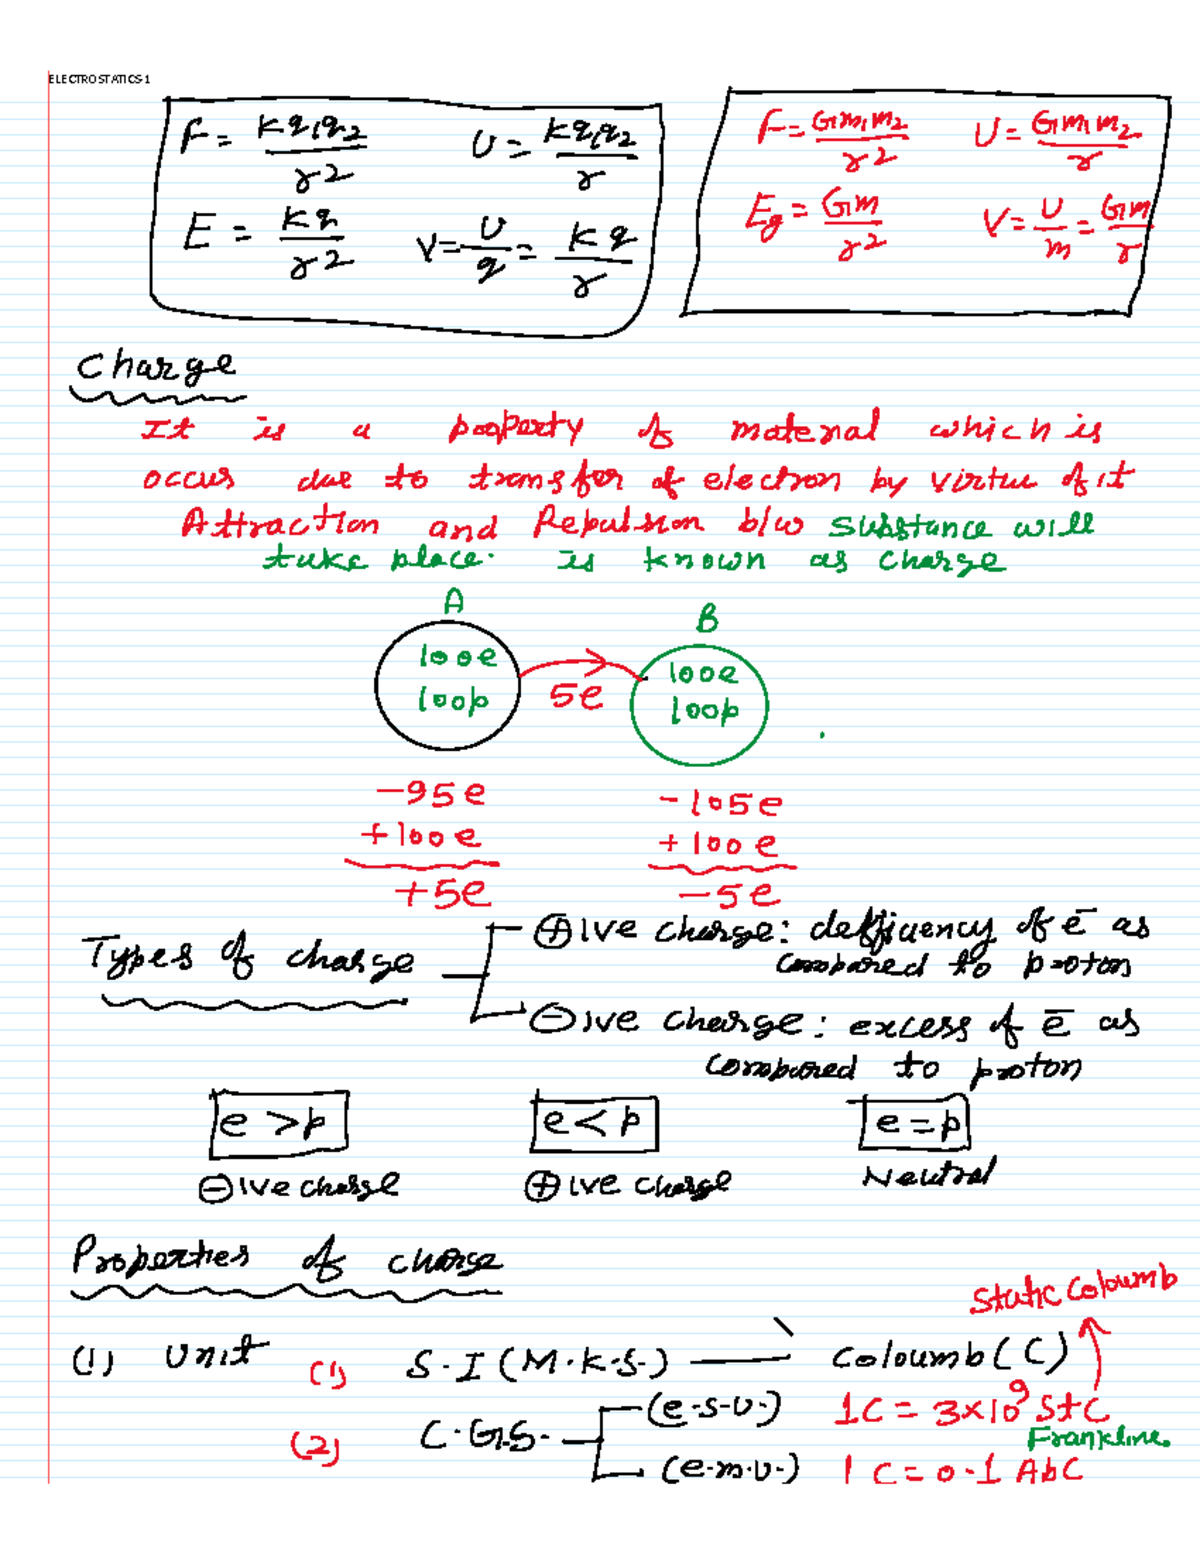 ELECTROSTATICS 1
F = Kq₁q₂/r² U = Kq₁q₂/r
E = Kq/r² V = U/q = Kq/r
F = Gm₁m₂/r² U = Gm₁m₂/r
Eg = Gm/r² V = U/m = Gm/r
Charge
It is a property of material which is
occus due to transfer of electron by virtue of it
Attraction and Repulsion b/w substance will
take place. is known as charge
A B
100e 100e
100p 5e 100p
-95e -105e
+100e +100e
+5e -5e
Types of charge
⊕ive charge: defficiency of e⁻ as
compared to proton
⊖ive charge: excess of e⁻ as
compared to proton
e > p e < p e = p
⊖ive charge ⊕ive charge Neutral
Properties of charge
Static Coloumb
(1) Unit (1) S.I (M.K.S.) — Coloumb (C)
(2) C.G.S. (e.s.u.) 1C = 3×10⁹ StC
Frankline.
(e.m.u.) 1C = 0.1 AbC